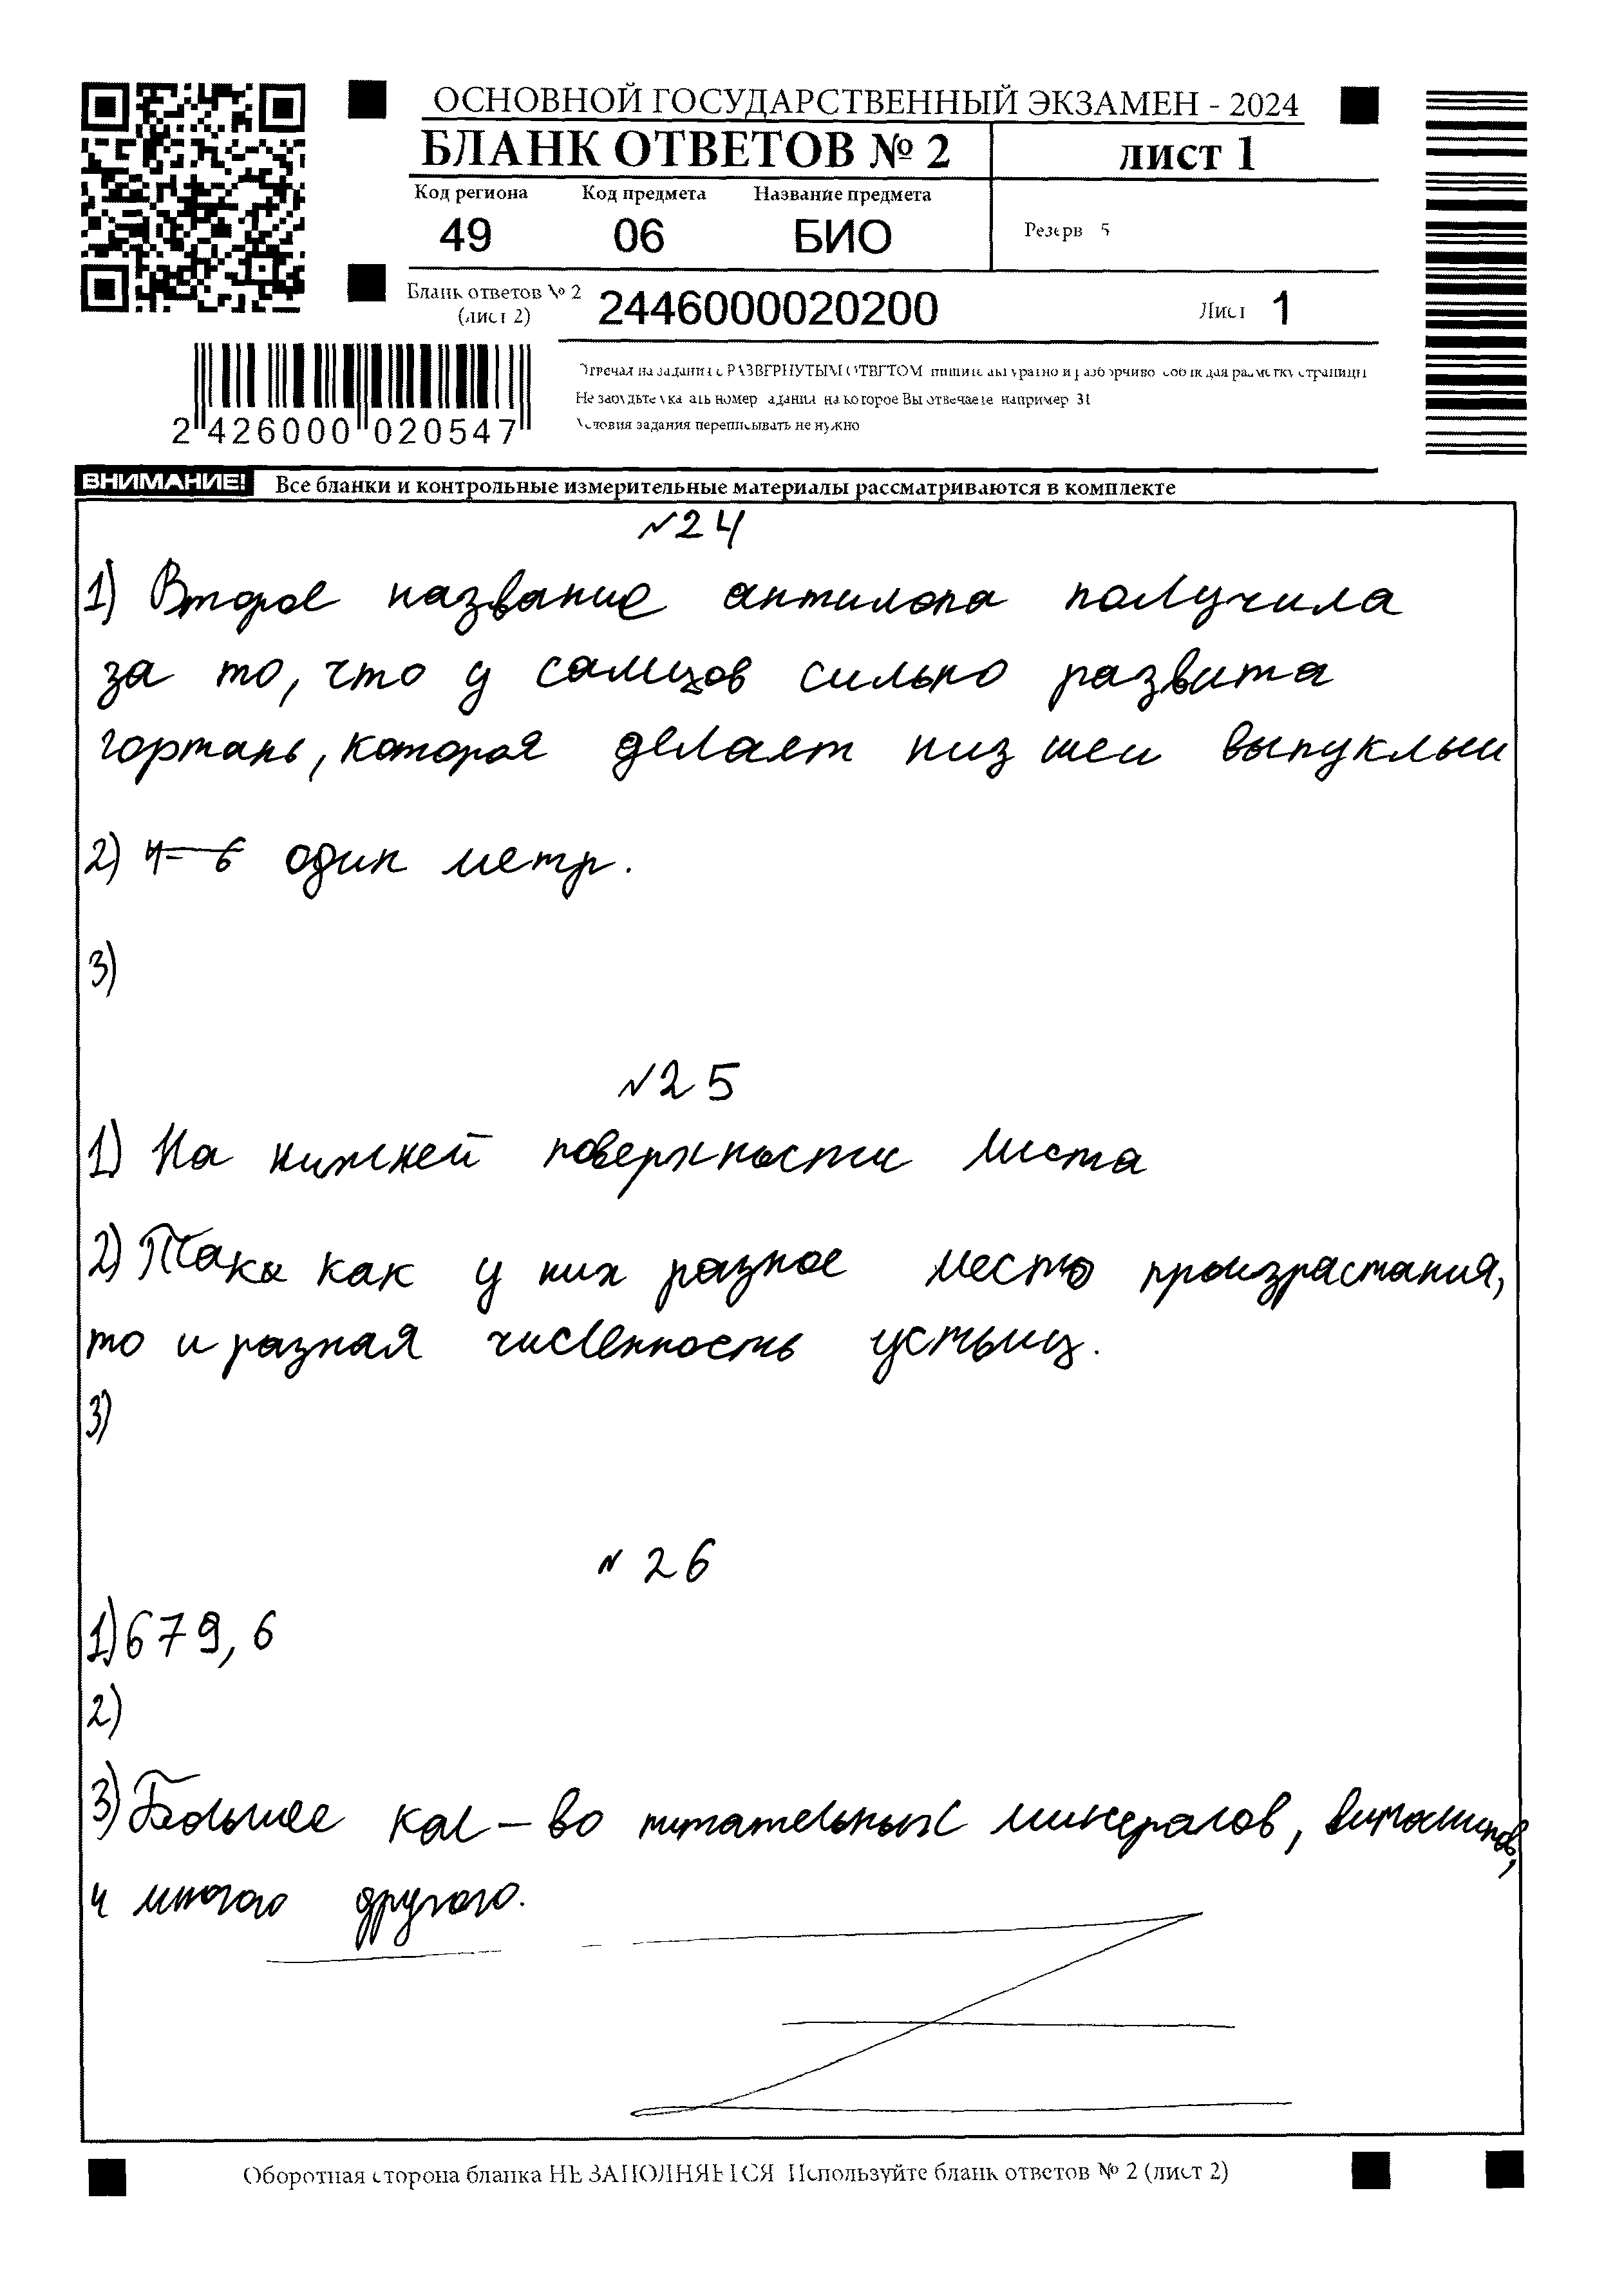 ОСНОВНОЙ ГОСУДАРСТВЕННЫЙ ЭКЗАМЕН - 2024
БЛАНК ОТВЕТОВ № 2
ЛИСТ 1
Код региона Код предмета Название предмета
49 06 БИО
Резерв 5
Бланк ответов № 2
(лист 2)
2446000020200
Лист 1
2 426000 020547
Отвечая на задания с РАЗВЕРНУТЫМ ОТВЕТОМ пишите аккуратно и разборчиво соблюдая разметку страницы
Не забудьте указать номер задания на которое Вы отвечаете например 31
Условия задания переписывать не нужно
ВНИМАНИЕ! Все бланки и контрольные измерительные материалы рассматриваются в комплекте
№24
1) Второе название антилопа получила
за то, что у самцов сильно развита
гортань, которая делает низ шеи выпуклым
2) 4-6 один метр.
3)
№25
1) На нижней поверхности листа
2) Так как у них разное место произрастания,
то и разная численность устьиц.
3)
№ 26
1) 679,6
2)
3) Большее кол-во питательных минералов, витаминов,
и много другого.
Оборотная сторона бланка НЕ ЗАПОЛНЯЕТСЯ Используйте бланк ответов № 2 (лист 2)